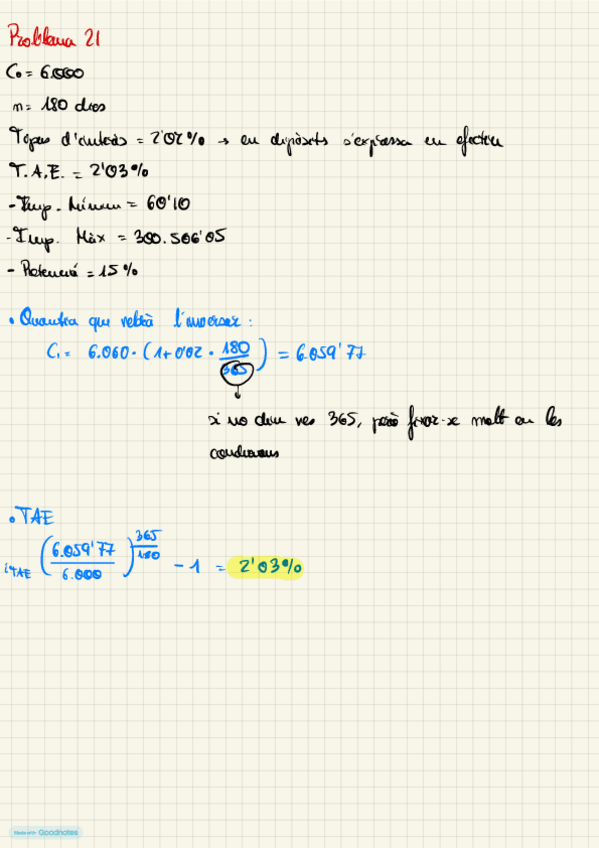 Problema 21
C₀ = 6.000
n = 180 dies
Tipus d'interès = 2'02% → en dipòsits s'expressa en efectiu
T.A.E. = 2'03%
- Imp. Mínim = 60'10
- Imp. Màx = 300.506'05
- Retenció = 15%
• Quantia que rebrà l'inversor:
C₁ = 6.060 · (1 + 0'02 · 180/365) = 6.059'77
si no diu res 365, però fixar-se molt en les
condicions
• TAE
i TAE (6.059'77/6.000)^365/180 - 1 = 2'03%
Made with Goodnotes